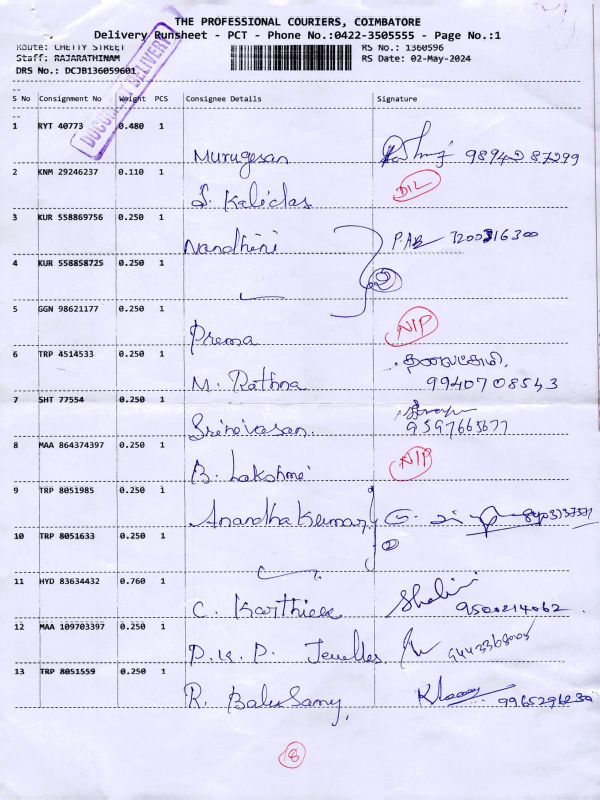 THE PROFESSIONAL COURIERS, COIMBATORE
Delivery Runsheet - PCT - Phone No.:0422-3505555 - Page No.:1
Route: CHETTY STREET RS No.: 1360596
Staff: RAJARATHINAM RS Date: 02-May-2024
DRS No.: DCJB136059601
DOCUMENT DELIVERY
S No Consignment No Weight PCS Consignee Details Signature
1 RYT 40773 0.480 1
Murugesan
2 KNM 29246237 0.110 1 D/L
S. Kalidas
3 KUR 558869756 0.250 1
Nandhini 7200316300
4 KUR 558858725 0.250 1
2
5 GGN 98621177 0.250 1
Prema N/P
6 TRP 4514533 0.250 1
M. Rathna 9940708543
7 SHT 77554 0.250 1
Srinivasan. 9597665677
8 MAA 864374397 0.250 1
B. Lakshmi N/P
9 TRP 8051985 0.250 1
Anandha Kumar
10 TRP 8051633 0.250 1
2
11 HYD 83634432 0.760 1
C. Karthick Shalini 9500214062
12 MAA 109703397 0.250 1
P.K.P. Jewelles
13 TRP 8051559 0.250 1
R. Balu Samy,
8